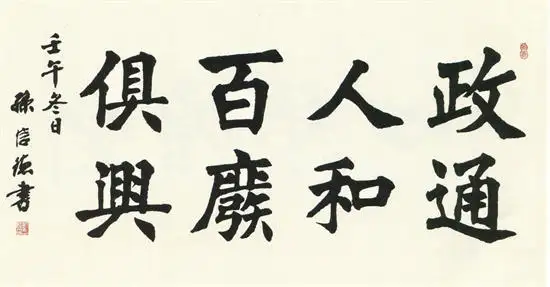 政通
人和
百廢
俱興
壬午冬日
孫信德書